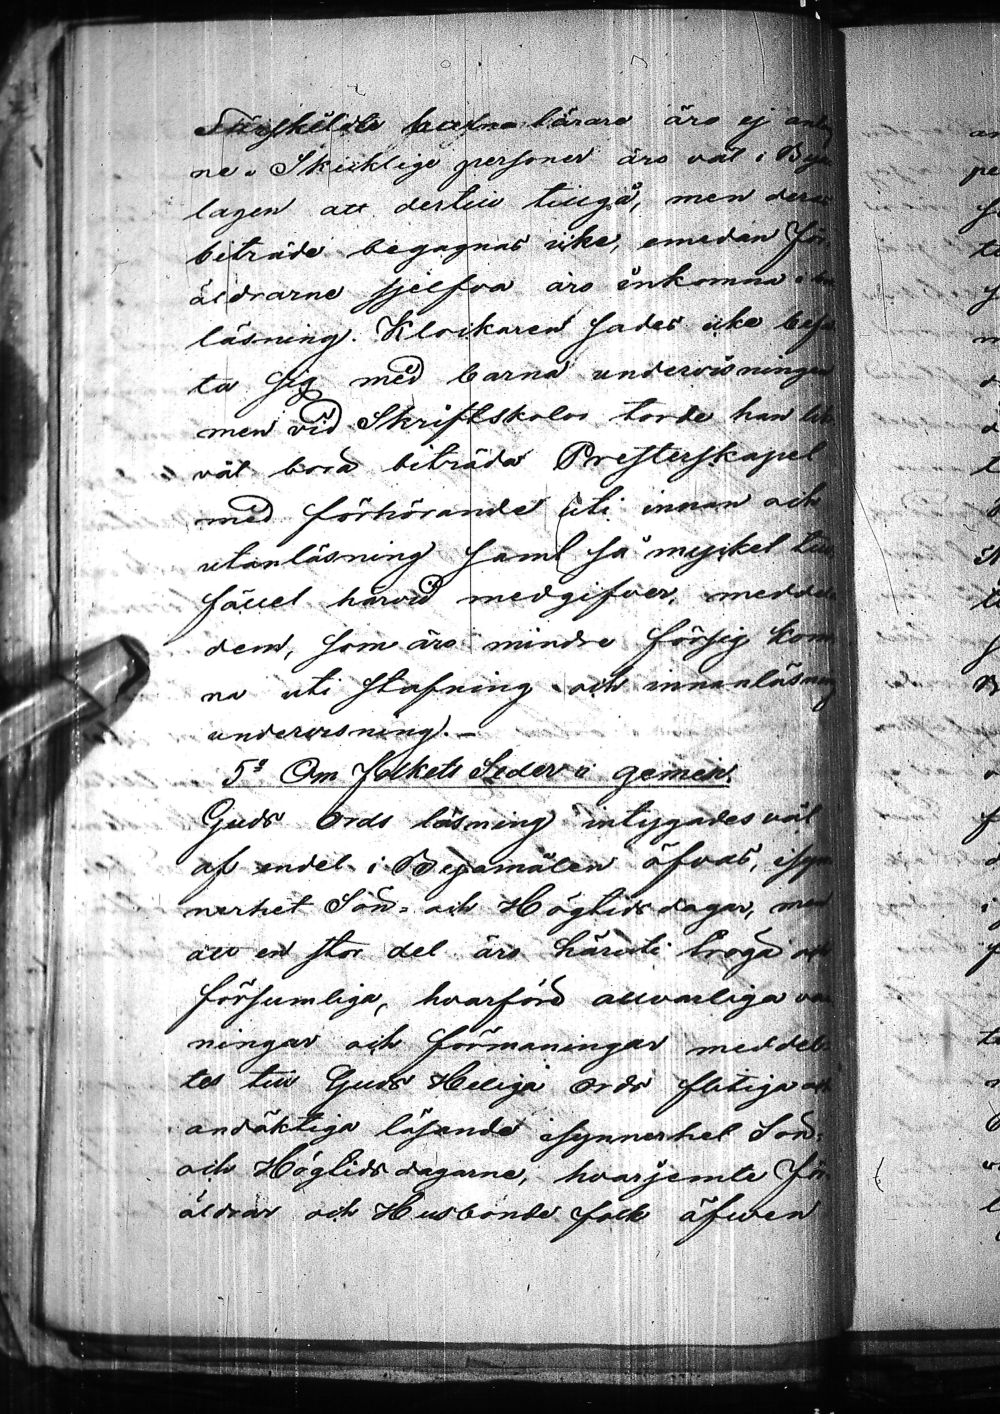 Särskilde barna lärare äro ej antag
ne. Skicklige personer äro väl i Bya
lagen att dertill tillgå, men deras
biträde begagnas icke, emedan För
äldrarne sjelfva äro inkomna i
läsning. Klockaren sades icke befa
ta sig med barna undervisningen
men vid Skriftskolor torde han lik
väl bora biträda Presterskapet
med förhörande uti innan och
utanläsning samt så mycket till
fället härvid medgifver, meddela
dem, som äro mindre försig kom
ne uti stafning och innanläsning
undervisning. —
5º Om folkets Seder i gemen.
Guds Ords läsning intygades väl
af endel i Byamålen öfvas, isyn
nerhet Sön- och Högtids dagar, men
att en stor del äro häruti tröga och
försumliga, hvarföre allvarliga var
ningar och förmaningar meddel
tes till Guds Heliga Ords flitiga och
andäktiga läsande isynnerhet Sön-
och Högtids dagarne, hvarjemte För
äldrar och Husbonde folk äfwen